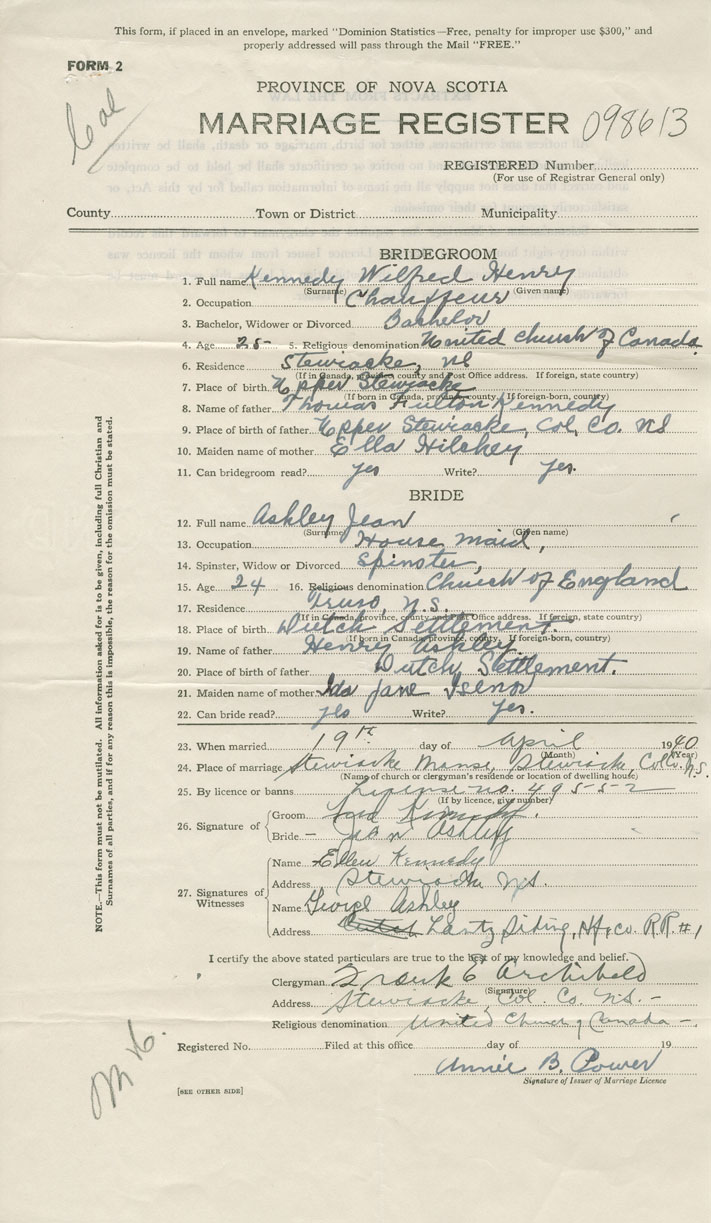 This form, if placed in an envelope, marked "Dominion Statistics—Free, penalty for improper use $300," and
properly addressed will pass through the Mail "FREE."
FORM 2
Col
PROVINCE OF NOVA SCOTIA
MARRIAGE REGISTER 098613
REGISTERED Number
(For use of Registrar General only)
County Town or District Municipality
BRIDEGROOM
1. Full name Kennedy Wilfred Henry
(Surname) (Given name)
2. Occupation Chauffeur
3. Bachelor, Widower or Divorced Bachelor
4. Age 25- 5. Religious denomination United Church of Canada
6. Residence Stewiacke, NS
(If in Canada, province, county and Post Office address. If foreign, state country)
7. Place of birth Upper Stewiacke
(If born in Canada, province, county. If foreign-born, country)
8. Name of father Thomas Fulton Kennedy
9. Place of birth of father Upper Stewiacke, Col. Co. NS
10. Maiden name of mother Ella Hilchey
11. Can bridegroom read? yes Write? yes.
BRIDE
12. Full name Ashley Jean
(Surname) (Given name)
13. Occupation House maid,
14. Spinster, Widow or Divorced Spinster,
15. Age 24 16. Religious denomination Church of England
17. Residence Truro, N.S.
(If in Canada, province, county and Post Office address. If foreign, state country)
18. Place of birth Dutch Settlement.
(If born in Canada, province, county. If foreign-born, country)
19. Name of father Henry Ashley
20. Place of birth of father Dutch Settlement.
21. Maiden name of mother Ida Jane Isenor
22. Can bride read? yes Write? yes.
23. When married 19th day of April 1940
(Month) (Year)
24. Place of marriage Stewiacke Manse, Stewiacke, Col. Co. N.S.
(Name of church or clergyman's residence or location of dwelling house)
25. By licence or banns License no. 49552
(If by licence, give number)
26. Signature of
Groom Kennedy.
Bride Jean Ashley
27. Signatures of Witnesses
Name Ellen Kennedy
Address Stewiacke N.S.
Name George Ashley
Address Lantz Siding, Hfx co. R.R. #1
I certify the above stated particulars are true to the best of my knowledge and belief.
Clergyman Frank E Archibald
(Signature)
Address Stewiacke, Col. Co. N.S. -
Religious denomination United Church of Canada -
Registered No. Filed at this office day of 19
Annie B. Power
Signature of Issuer of Marriage Licence
[SEE OTHER SIDE]
NOTE.—This form must not be mutilated. All information asked for is to be given, including full Christian and
Surnames of all parties, and if for any reason this is impossible, the reason for the omission must be stated.